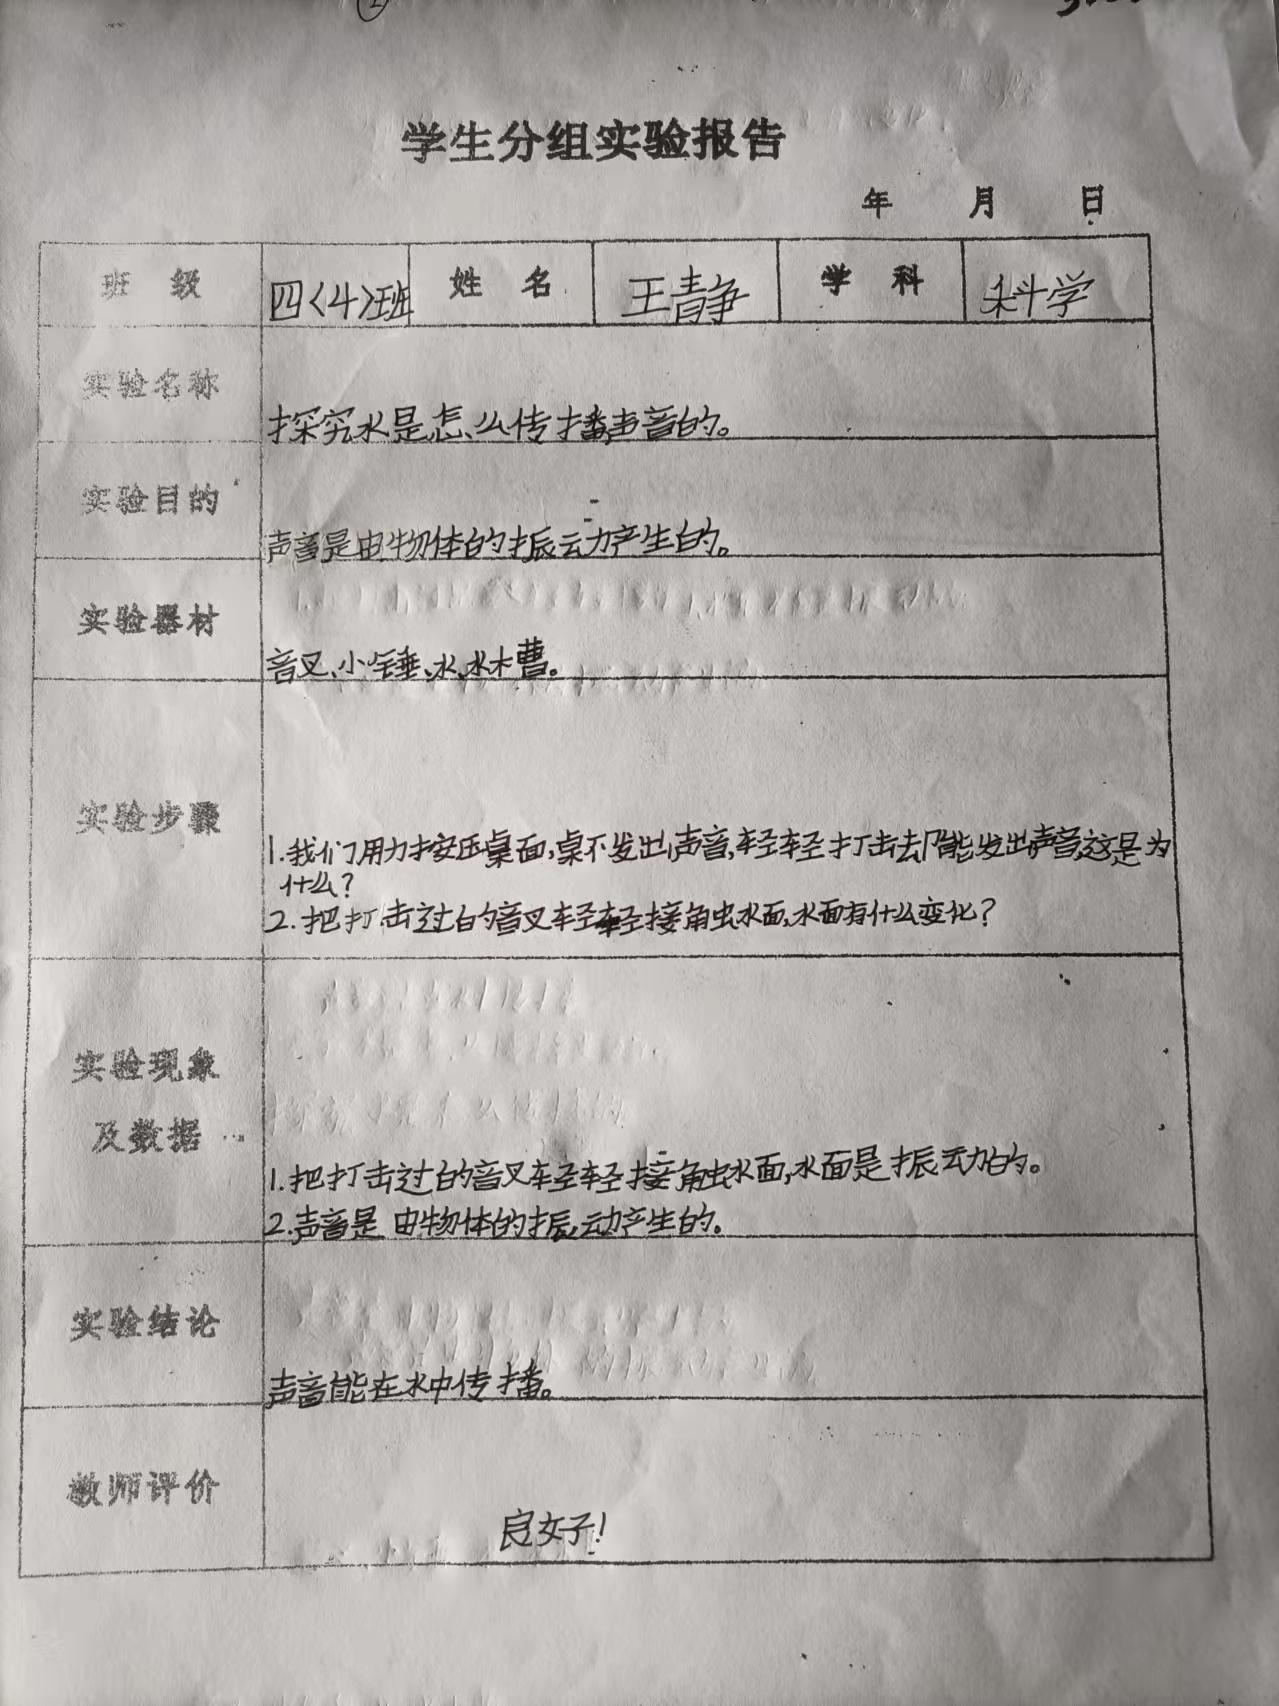 学生分组实验报告
年 月 日
班 级 四(4)班 姓 名 王青静 学 科 科学
实验名称 探究水是怎么传播声音的。
实验目的 声音是由物体的振动产生的。
实验器材 音叉、小锤、水、水槽。
实验步骤
1.我们用力按压桌面,桌不发出声音,轻轻打击却能发出声音,这是为
什么?
2.把打击过的音叉轻轻接触水面,水面有什么变化?
实验现象
及数据
1.把打击过的音叉轻轻接触水面,水面是振动的。
2.声音是由物体的振动产生的。
实验结论 声音能在水中传播。
教师评价 良好!